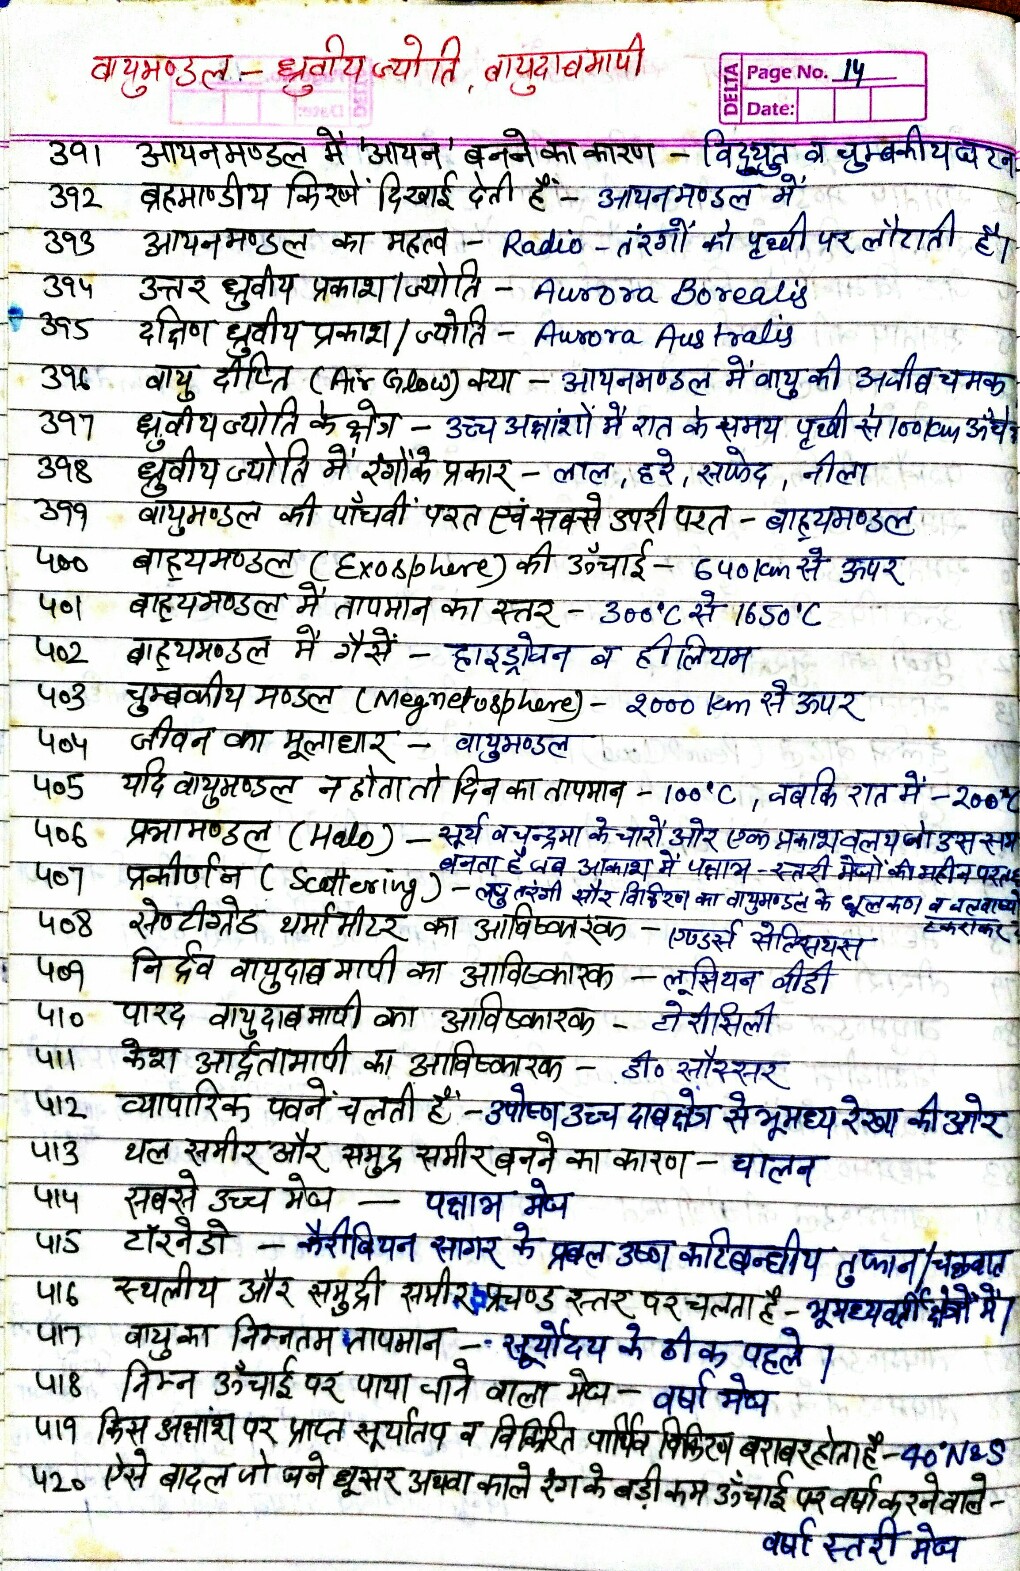 वायुमण्डल - ध्रुवीय ज्योति, वायुदाबमापी
DELTA Page No. 14
Date:
391 आयनमण्डल में 'आयन' बनने का कारण - विद्युत व चुम्बकीय घटन
392 ब्रहमाण्डीय किरणें दिखाई देती हैं - आयनमण्डल में
393 आयनमण्डल का महत्व - Radio - तंरगों को पृथ्वी पर लौटाती है।
394 उत्तर ध्रुवीय प्रकाश/ज्योति - Aurora Borealis
395 दक्षिण ध्रुवीय प्रकाश/ज्योति - Aurora Australis
396 वायु दीप्ति (Air Glow) क्या - आयनमण्डल में वायु की अजीब चमक
397 ध्रुवीय ज्योति के क्षेत्र - उच्च अक्षांशों में रात के समय पृथ्वी से 100 km ऊँचे
398 ध्रुवीय ज्योति में रंगों के प्रकार - लाल, हरे, सफेद, नीला
399 वायुमण्डल की पाँचवीं परत एवं सबसे उपरी परत - बाह्यमण्डल
400 बाह्यमण्डल (Exosphere) की ऊँचाई - 640 km से ऊपर
401 बाह्यमण्डल में तापमान का स्तर - 300°C से 1650°C
402 बाह्यमण्डल में गैसें - हाइड्रोजन व हीलियम
403 चुम्बकीय मण्डल (Megnetosphere) - 2000 km से ऊपर
404 जीवन का मूलाधार - वायुमण्डल
405 यदि वायुमण्डल न होता तो दिन का तापमान - 100°C, जबकि रात में -200°C
406 प्रभामण्डल (Halo) - सूर्य व चन्द्रमा के चारों ओर एक प्रकाश वलय जो उस समय
बनता है जब आकाश में पक्षाभ - स्तरी मेघों की महीन परत
407 प्रकीर्णन (Scattering) - लघु तरंगी सौर विकिरण का वायुमण्डल के धूलकण व जलवाष्प से
टकराकर
408 सेण्टीग्रेड थर्मामीटर का आविष्कारक - एण्डर्स सेल्सियस
409 निर्द्रव वायुदाब मापी का आविष्कारक - लूसियन वीडी
410 पारद वायुदाबमापी का आविष्कारक - टोरीसिली
411 केश आर्द्रतामापी का आविष्कारक - डी० सौस्सर
412 व्यापारिक पवनें चलती हैं - उपोष्ण उच्च दाब क्षेत्र से भूमध्य रेखा की ओर
413 थल समीर और समुद्र समीर बनने का कारण - चालन
414 सबसे उच्च मेघ - पक्षाभ मेघ
415 टॉरनेडो - कैरीबियन सागर के प्रबल उष्ण कटिबन्धीय तुफान/चक्रवात
416 स्थलीय और समुद्री समीर प्रचण्ड स्तर पर चलता है - भूमध्यवर्ती क्षेत्रों में।
417 वायु का निम्नतम तापमान - सूर्योदय के ठीक पहले।
418 निम्न ऊँचाई पर पाया जाने वाला मेघ - वर्षा मेघ
419 किस अक्षांश पर प्राप्त सूर्यातप व विकिरित पार्थिव विकिरण बराबर होता है - 40°N&S
420 ऐसे बादल जो घने धूसर अथवा काले रंग के बड़ी कम ऊँचाई पर वर्षा करने वाले -
वर्षा स्तरी मेघ